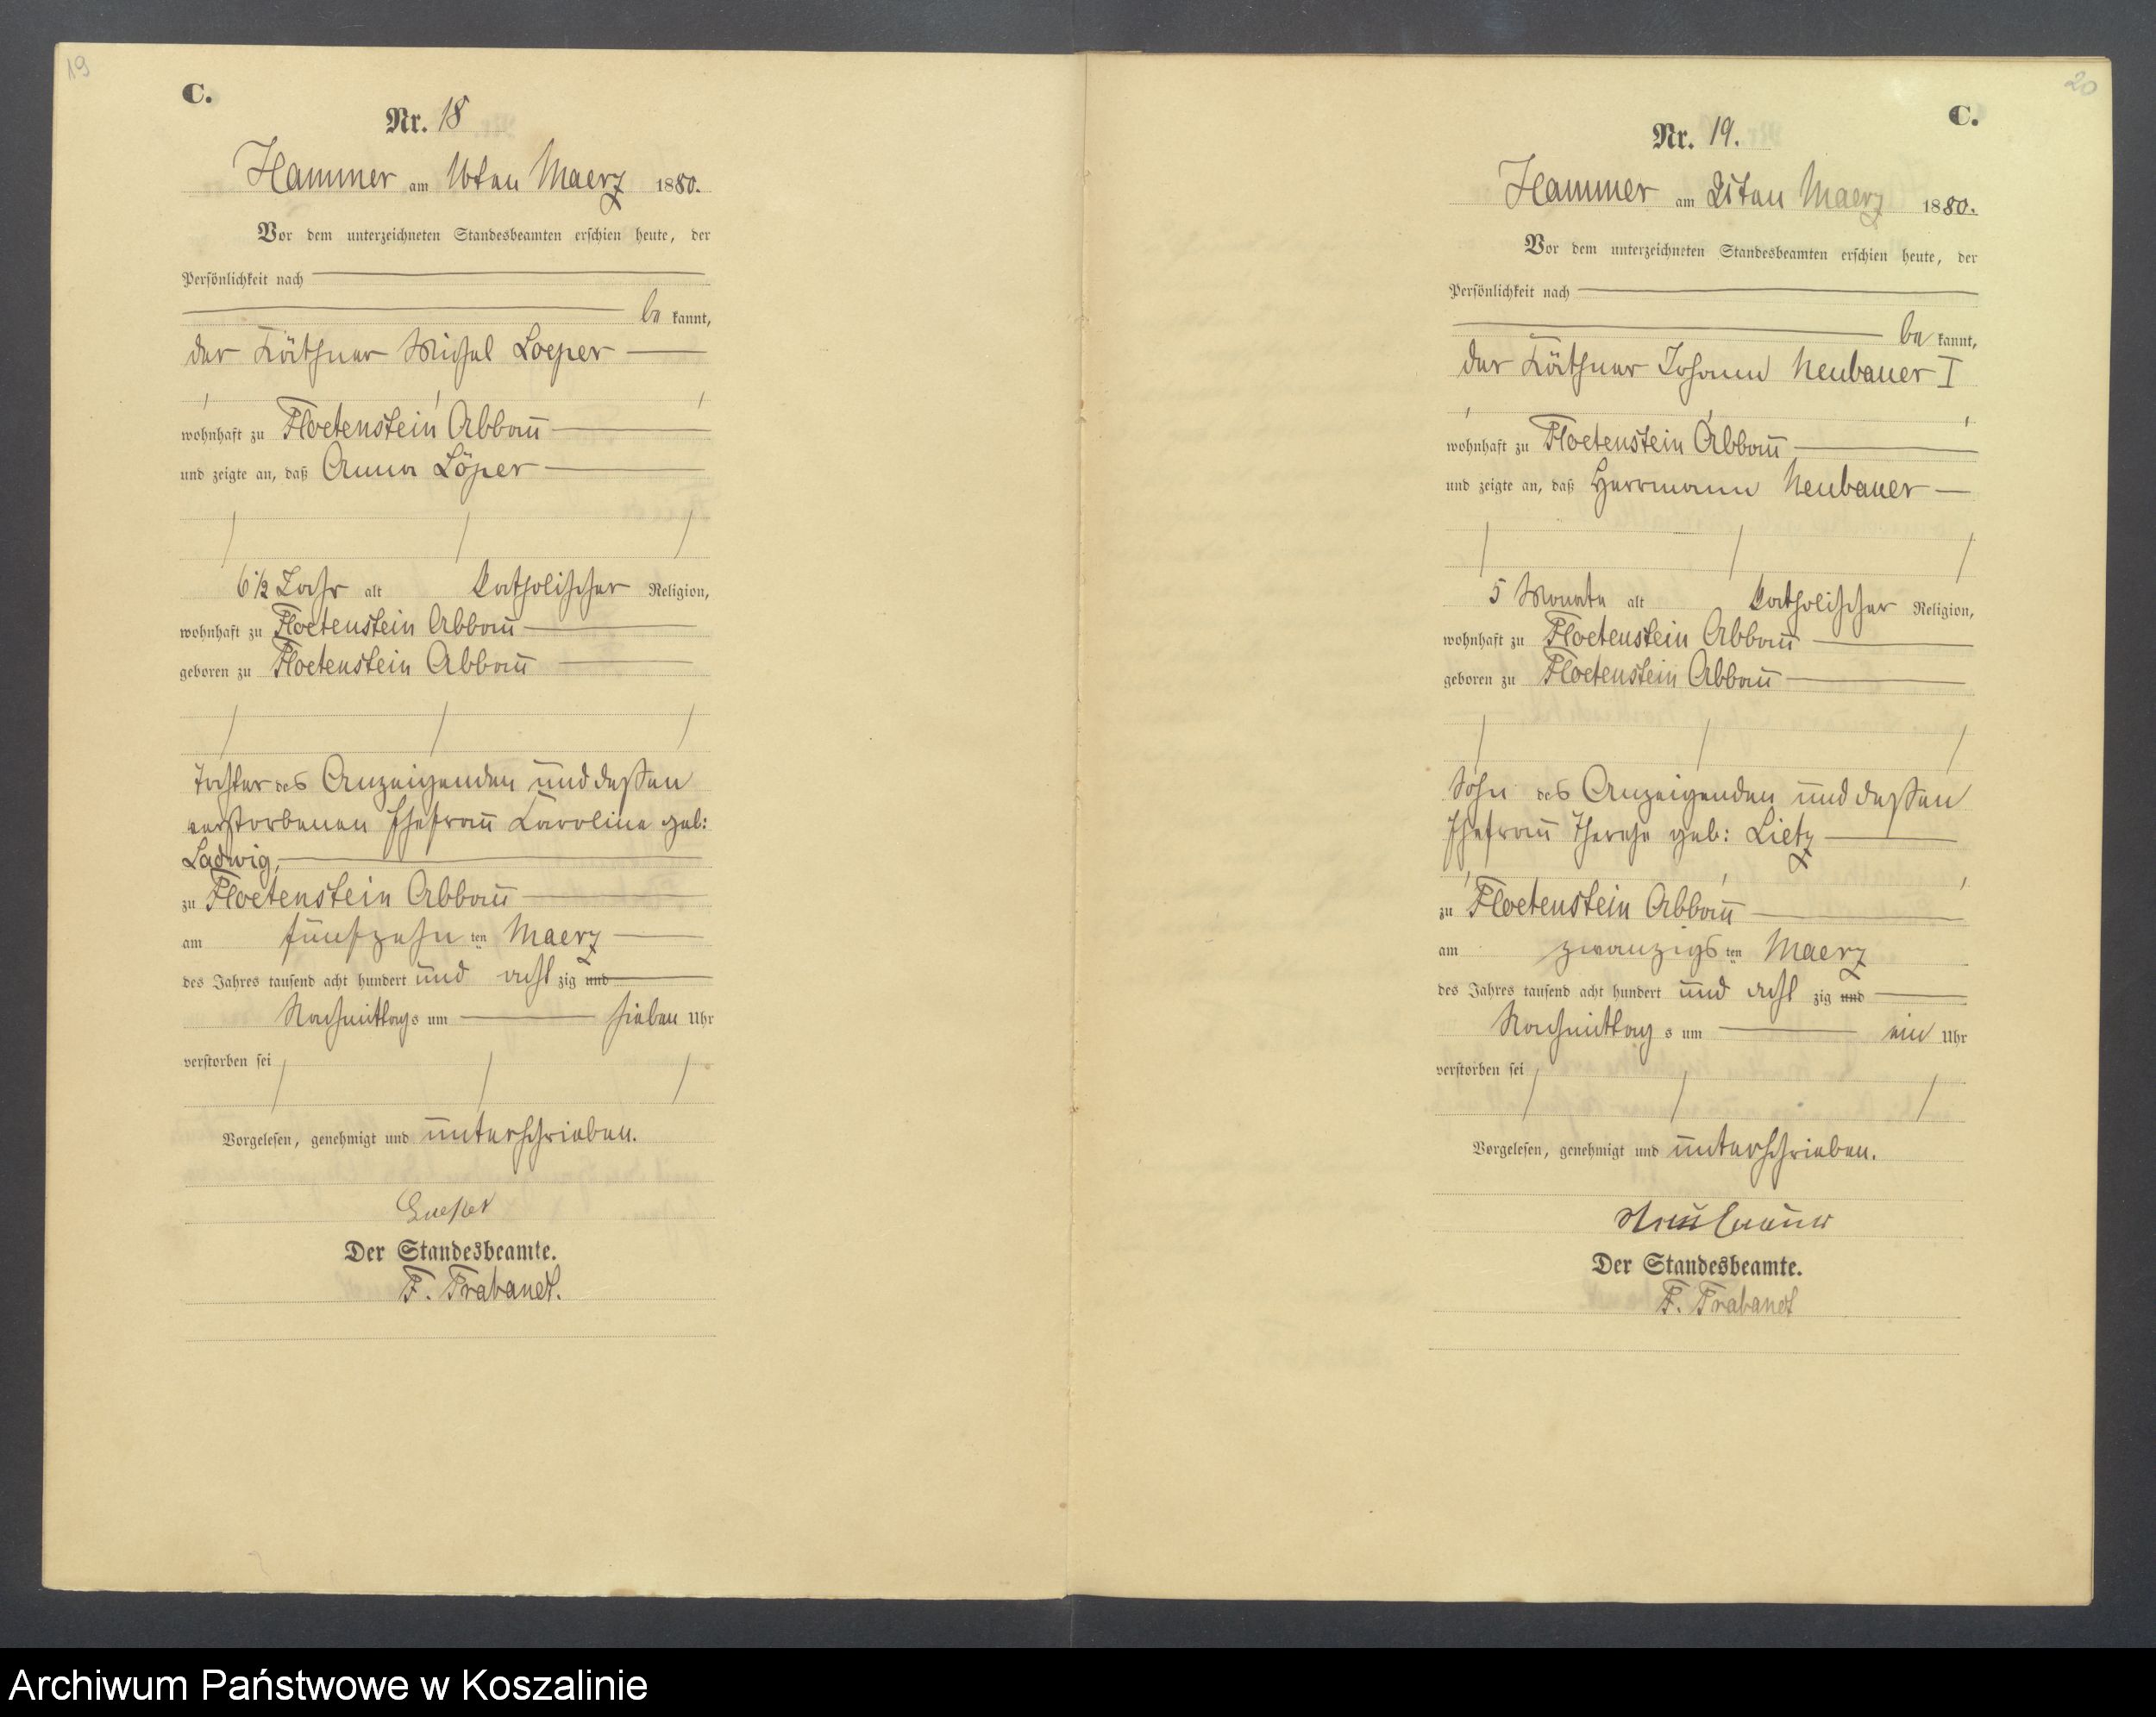 19
C.
Nr. 18
Hammer am 16ten Maerz 1880.
Vor dem unterzeichneten Standesbeamten erschien heute, der
Persönlichkeit nach
be kannt,
der Käthner Michel Loeper
wohnhaft zu Floetenstein Abbau
und zeigte an, daß Anna Löper
6 1/2 Jahr alt katholischer Religion,
wohnhaft zu Floetenstein Abbau
geboren zu Floetenstein Abbau
Tochter des Anzeigenden und deßen
verstorbenen Ehefrau Karoline geb:
Ladwig,
zu Floetenstein Abbau
am fünfzehn ten Maerz
des Jahres tausend acht hundert und acht zig und
Nachmittags um sieben Uhr
verstorben sei
Vorgelesen, genehmigt und unterschrieben.
Der Standesbeamte.
F. Trabandt.
20
C.
Nr. 19.
Hammer am 21ten Maerz 1880.
Vor dem unterzeichneten Standesbeamten erschien heute, der
Persönlichkeit nach
be kannt,
der Käthner Johann Neubauer I
wohnhaft zu Floetenstein Abbau
und zeigte an, daß Herrmann Neubauer
5 Monate alt katholischer Religion,
wohnhaft zu Floetenstein Abbau
geboren zu Floetenstein Abbau
Sohn des Anzeigenden und deßen
Ehefrau Therese geb: Lietz
zu Floetenstein Abbau
am zwanzigs ten Maerz
des Jahres tausend acht hundert und acht zig und
Nachmittag s um ein Uhr
verstorben sei
Vorgelesen, genehmigt und unterschrieben.
Neubauer
Der Standesbeamte.
F. Trabandt
Archiwum Państwowe w Koszalinie